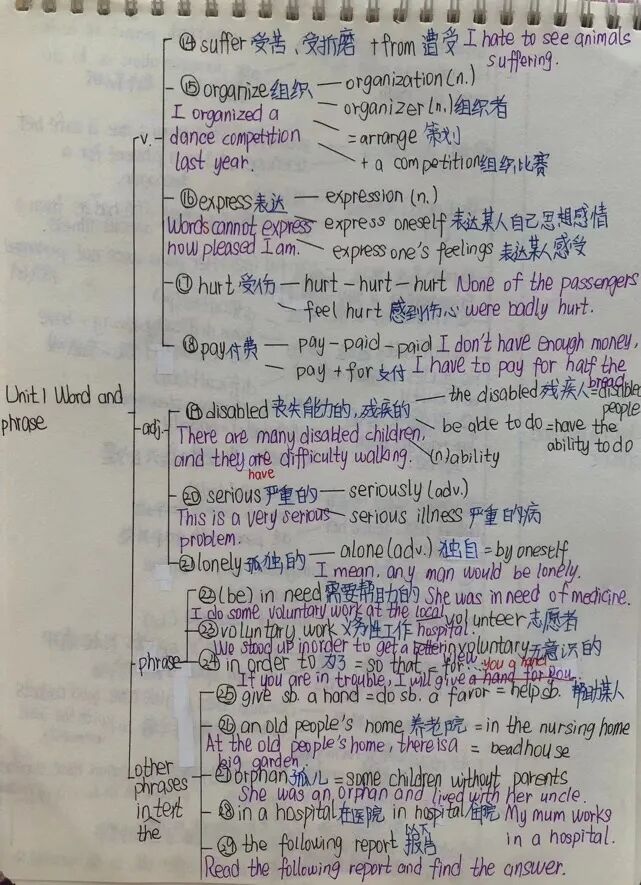 ⑭ suffer 受苦、受折磨 + from 遭受 I hate to see animals
suffering.
v.
⑮ organize 组织 — organization (n.)
I organized a organizer (n.) 组织者
dance competition = arrange 策划
last year. + a competition 组织比赛
⑯ express 表达 — expression (n.)
Words cannot express express oneself 表达某人自己思想感情
how pleased I am. express one's feelings 表达某人感受
⑰ hurt 受伤 — hurt - hurt - hurt None of the passengers
feel hurt 感到伤心 were badly hurt.
⑱ pay 付费 — pay - paid - paid I don't have enough money,
pay + for 支付 I have to pay for half the
bread
Unit 1 Word and
phrase
adj.
⑲ disabled 丧失能力的，残疾的 the disabled 残疾人 = disabled
people
There are many disabled children, be able to do = have the
ability to do
and they are difficulty walking. (n) ability
have
⑳ serious 严重的 — seriously (adv.)
This is a very serious serious illness 严重的病
problem.
㉑ lonely 孤独的 — alone (adv.) 独自 = by oneself
I mean, any man would be lonely.
phrase
㉒ (be) in need 需要帮助的 She was in need of medicine.
I do some voluntary work at the local volunteer 志愿者
㉓ voluntary work 义务性工作 hospital.
We stood up in order to get a better involuntary 无意识的
㉔ in order to 为了 = so that = for... view you a hand
If you are in trouble, I will give a hand for you.
other
phrases
in text
the
㉕ give sb. a hand = do sb. a favor = help sb. 帮助某人
㉖ an old people's home 养老院 = in the nursing home
At the old people's home, there is a = beadhouse
big garden.
㉗ orphan 孤儿 = some children without parents
She was an orphan and lived with her uncle.
㉘ in a hospital 在医院 in hospital 住院 My mum works
in a hospital.
㉙ the following report 以下报告
Read the following report and find the answer.